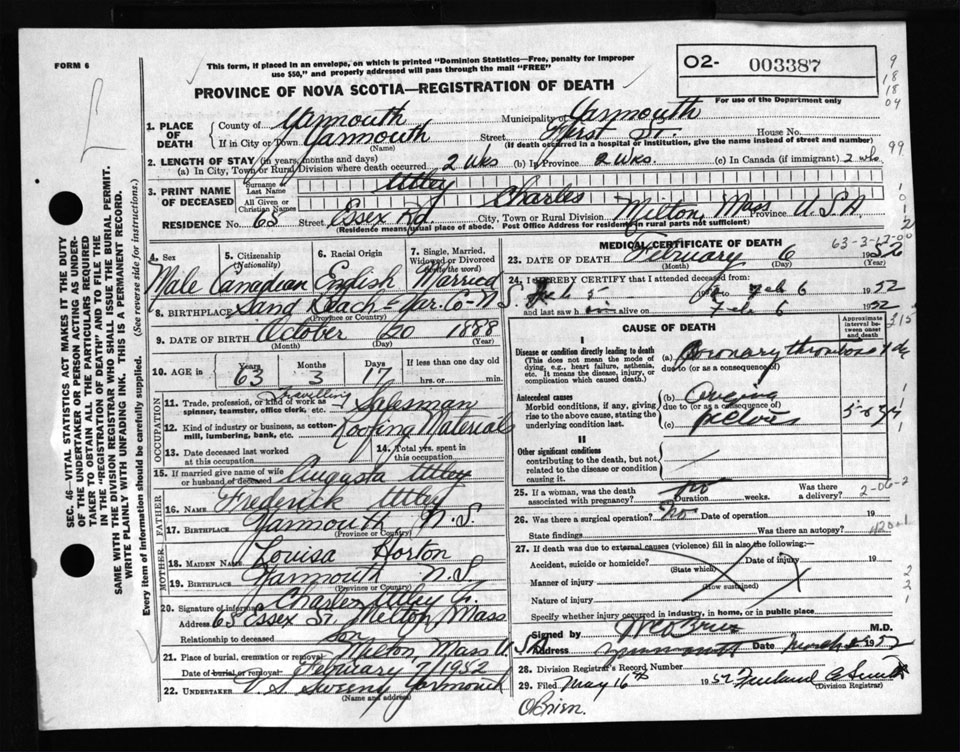 FORM 6
This form, if placed in an envelope, on which is printed "Dominion Statistics—Free, penalty for improper
use $50," and properly addressed will pass through the mail "FREE"
O2- 003387
9
18
18
04
For use of the Department only
PROVINCE OF NOVA SCOTIA—REGISTRATION OF DEATH
1. PLACE OF DEATH
County of Yarmouth Municipality Yarmouth
If in City or Town Yarmouth Street First St. House No.
(Name) (If death occurred in a hospital or institution, give the name instead of street and number)
99
2. LENGTH OF STAY (in years, months and days)
(a) In City, Town or Rural Division where death occurred 2 wks (b) In Province 2 wks. (c) In Canada (if immigrant) 2 wks.
3. PRINT NAME OF DECEASED
Surname or Last Name Utley
All Given or Christian Names Charles
RESIDENCE No. 63 Street Essex Rd. City, Town or Rural Division Milton, Mass Province U.S.A.
(Residence means usual place of abode. Post Office Address for residents in rural parts not sufficient)
4. Sex
Male
5. Citizenship
(Nationality)
Canadian
6. Racial Origin
English
7. Single, Married, Widowed or Divorced
(Write the word)
Married
8. BIRTHPLACE Sand Beach - Yar. Co - N.S.
(Province or Country)
9. DATE OF BIRTH October 20 1888
(Month) (Day) (Year)
10. AGE in
Years Months Days If less than one day old
63 3 17 hrs. or min.
OCCUPATION
11. Trade, profession, or kind of work as spinner, teamster, office clerk, etc. Travelling Salesman
12. Kind of industry or business, as cotton-mill, lumbering, bank, etc. Roofing Materials
13. Date deceased last worked at this occupation
14. Total yrs. spent in this occupation
15. If married give name of wife or husband of deceased Augusta Utley
FATHER
16. NAME Frederick Utley
17. BIRTHPLACE Yarmouth N.S.
(Province or Country)
MOTHER
18. MAIDEN NAME Louisa Horton
19. BIRTHPLACE Yarmouth N.S.
(Province or Country)
20. Signature of informant Charles Utley
Address 63 Essex St. Milton Mass
Relationship to deceased son
21. Place of burial, cremation or removal Milton Mass U.
Date of burial or removal February 7/1952
22. UNDERTAKER V.S. Sweeny Yarmouth
(Name and address)
MEDICAL CERTIFICATE OF DEATH
63-3-17-00
23. DATE OF DEATH February 6 1952
(Month) (Day)
24. I HEREBY CERTIFY that I attended deceased from:
Feb 5 19 to Feb 6 1952
and last saw him alive on Feb 6 1952
CAUSE OF DEATH
Approximate interval between onset and death
I
Disease or condition directly leading to death
(This does not mean the mode of dying, e.g., heart failure, asthenia, etc. It means the disease, injury, or complication which caused death.)
(a) Coronary thrombosis 1 dy
due to (or as a consequence of)
Antecedent causes
Morbid conditions, if any, giving rise to the above cause, stating the underlying condition last.
(b)
due to (or as a consequence of)
(c)
II
Other significant conditions
contributing to the death, but not related to the disease or condition causing it.
25. If a woman, was the death associated with pregnancy? no Duration weeks. Was there a delivery?
2-06-2
26. Was there a surgical operation? no Date of operation 19
State findings Was there an autopsy?
27. If death was due to external causes (violence) fill in also the following:
Accident, suicide or homicide? Date of injury 19
(State which)
Manner of injury
(How sustained)
Nature of injury
Specify whether injury occurred in industry, in home, or in public place
Signed by M.D.
Address Yarmouth Date March 1952
28. Division Registrar's Record Number
29. Filed May 16th 1952
(Division Registrar)
O'Brien.
SEC. 46—VITAL STATISTICS ACT MAKES IT THE DUTY
OF THE UNDERTAKER OR PERSON ACTING AS UNDER-
TAKER TO OBTAIN ALL THE PARTICULARS REQUIRED
IN THE "REGISTRATION OF DEATH" AND TO FILE THE
SAME WITH THE DIVISION REGISTRAR WHO SHALL ISSUE THE BURIAL PERMIT.
WRITE PLAINLY WITH UNFADING INK. THIS IS A PERMANENT RECORD.
Every item of information should be carefully supplied. (See reverse side for instructions.)